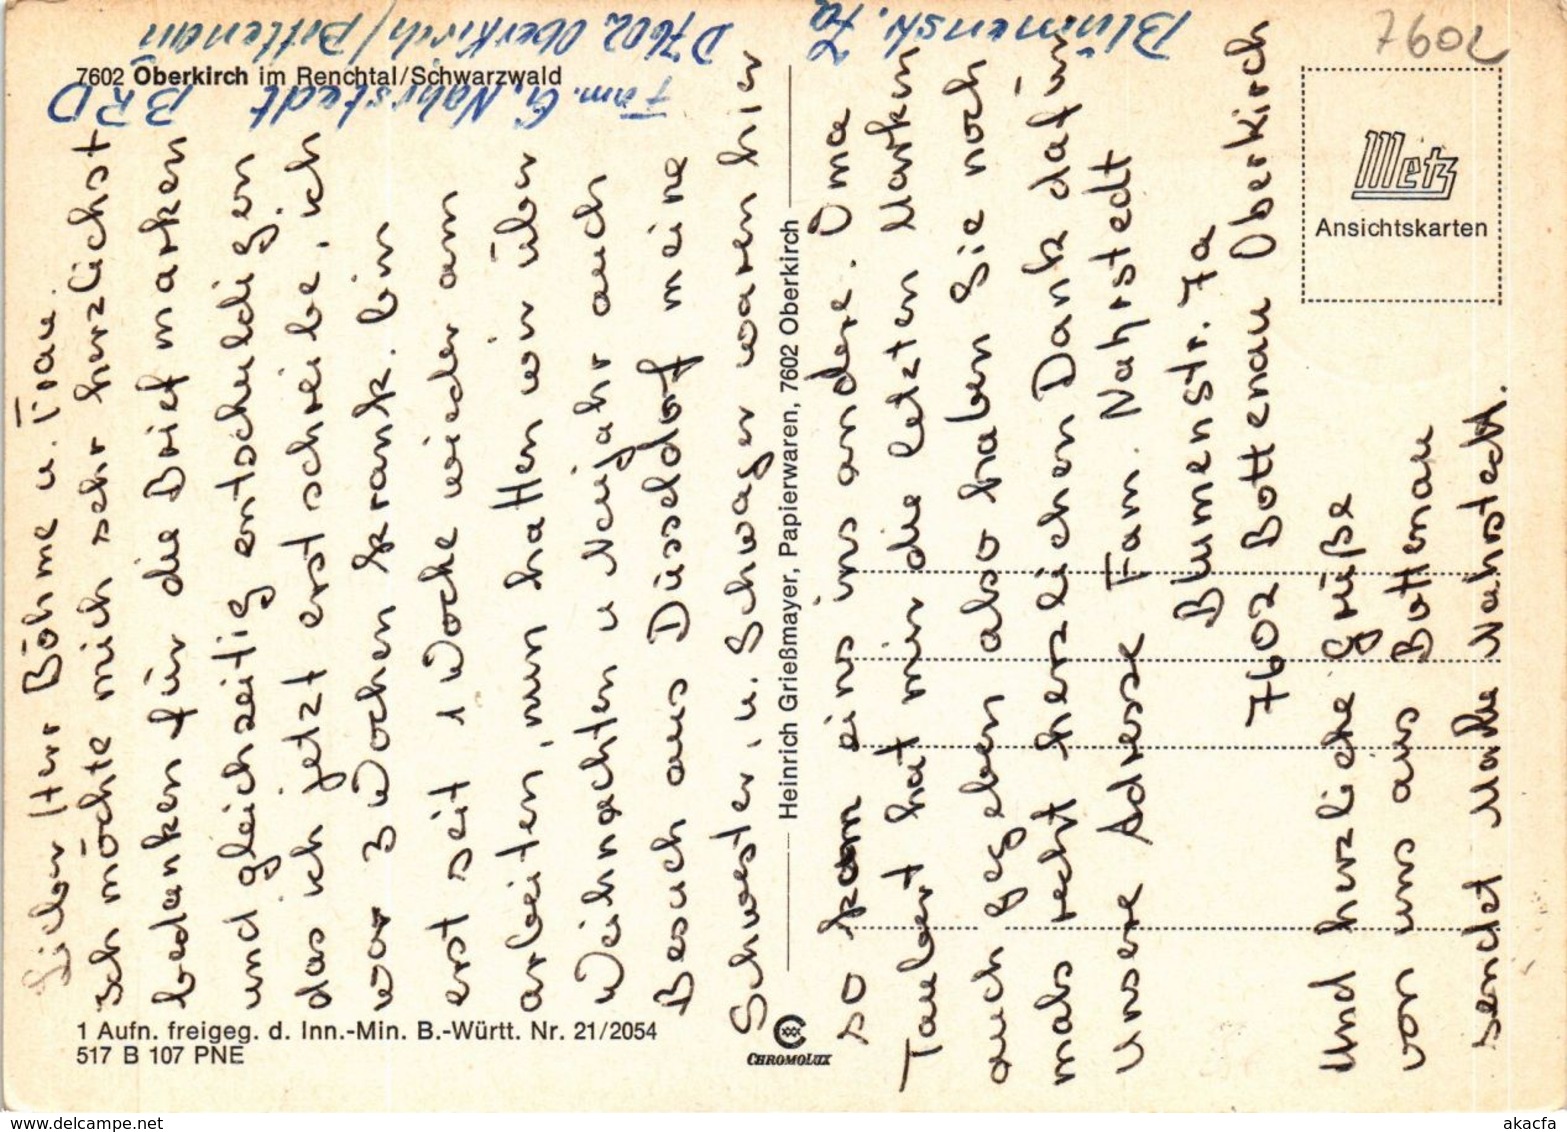 7602 Oberkirch im Renchtal/Schwarzwald
Lieber Herr Böhme u. Frau.
Ich möchte mich sehr herzlichst
bedanken für die Briefmarken
und gleichzeitig entschuldigen
das ich jetzt erst schreibe, ich
war 3 Wochen krank. bin
erst seit 1 Woche wieder am
arbeiten, nun hatten wir über
Weihnachten u Neujahr auch
Besuch aus Düsseldorf meine
Schwester, u. Schwager waren hier
so kam eins ins andere. Oma
Taubert hat mir die letzten Marken
auch gegeben also haben Sie noch
mals recht herzlichen Dank dafür
unsere Adresse Fam. Nahrstedt
Blumenstr. 7a
7602 Bottenau Oberkirch
Und herzliche Grüße
von uns aus Bottenau
sendet Nahrstedt.
Fam. G. Nahrstedt BRD
D 7602 Oberkirch/Bottenau
Blumenstr. 7a
7602
Heinrich Grießmayer, Papierwaren, 7602 Oberkirch
Metz
Ansichtskarten
1 Aufn. freigeg. d. Inn.-Min. B.-Württ. Nr. 21/2054
517 B 107 PNE
CHROMOLUX
www.delcampe.net
akacfa